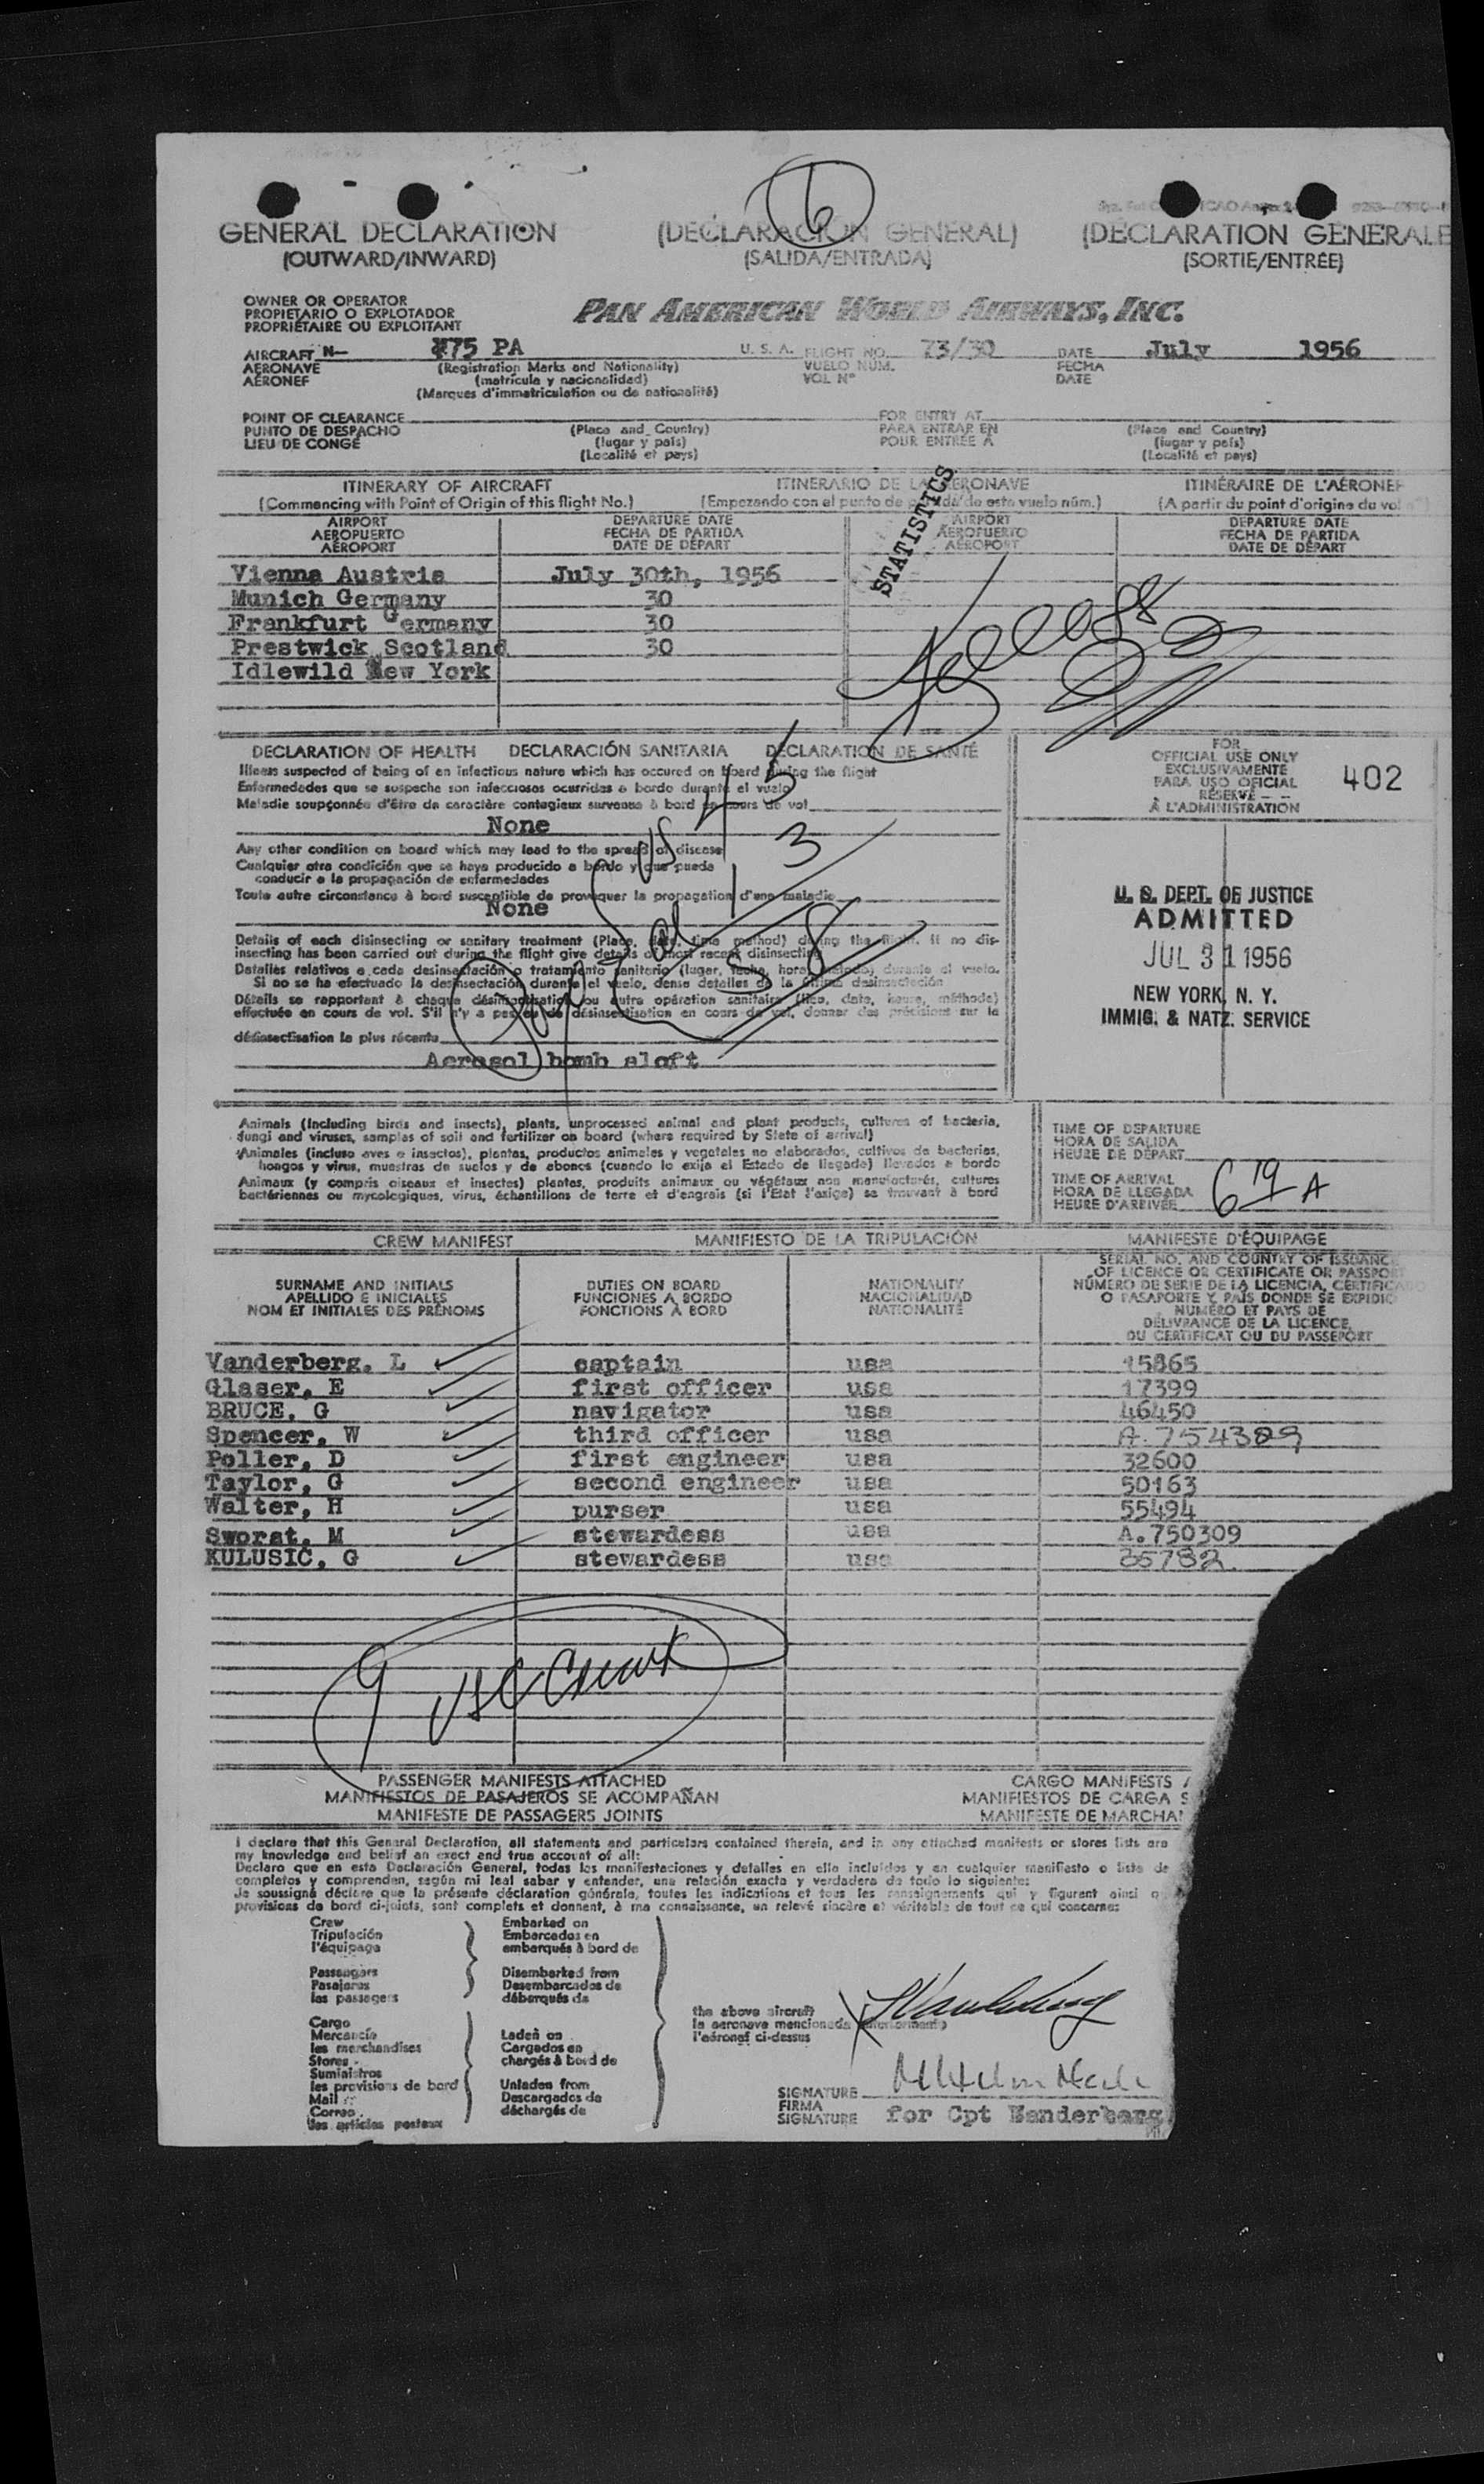 6
GENERAL DECLARATION (DECLARACIÓN GENERAL) (DÉCLARATION GÉNÉRALE
(OUTWARD/INWARD) (SALIDA/ENTRADA) (SORTIE/ENTRÉE)
OWNER OR OPERATOR
PROPIETARIO O EXPLOTADOR
PROPRIÉTAIRE OU EXPLOITANT
PAN AMERICAN WORLD AIRWAYS, INC.
AIRCRAFT N- 775 PA U. S. A. FLIGHT NO. 73/30 DATE July 1956
AERONAVE (Registration Marks and Nationality) VUELO NÚM. FECHA
AÉRONEF (matrícula y nacionalidad) VOL Nº DATE
(Marques d'immatriculation ou de nationalité)
POINT OF CLEARANCE FOR ENTRY AT
PUNTO DE DESPACHO (Place and Country) PARA ENTRAR EN (Place and Country)
LIEU DE CONGÉ (lugar y país) POUR ENTRÉE À (lugar y país)
(Localité et pays) (Localité et pays)
STATISTICS
ITINERARY OF AIRCRAFT ITINERARIO DE LA AERONAVE ITINÉRAIRE DE L'AÉRONEF
(Commencing with Point of Origin of this flight No.) (Empezando con el punto de partida de este vuelo núm.) (A partir du point d'origine du vol
AIRPORT DEPARTURE DATE AIRPORT DEPARTURE DATE
AEROPUERTO FECHA DE PARTIDA AEROPUERTO FECHA DE PARTIDA
AÉROPORT DATE DE DÉPART AÉROPORT DATE DE DÉPART
Vienna Austria July 30th, 1956
Munich Germany 30
Frankfurt Germany 30
Prestwick Scotland 30
Idlewild New York
DECLARATION OF HEALTH DECLARACIÓN SANITARIA DÉCLARATION DE SANTÉ
Illness suspected of being of an infectious nature which has occured on board during the flight
Enfermedades que se sospecha son infecciosas ocurridas a bordo durante el vuelo
Maladie soupçonnée d'être de caractère contagieux survenue à bord en cours de vol
None
Any other condition on board which may lead to the spread of disease
Cualquier otra condición que se haya producido a bordo y que pueda
conducir a la propagación de enfermedades
Toute autre circonstance à bord susceptible de provoquer la propagation d'une maladie
None
Details of each disinsecting or sanitary treatment (Place, date, time method) during the flight. If no dis-
insecting has been carried out during the flight give details of most recent disinsecting
Detalles relativos a cada desinsectación o tratamiento sanitario (lugar, fecha, hora, método) durante el vuelo.
Si no se ha efectuado la desinsectación durante el vuelo, dense detalles de la última desinsectación
Détails se rapportant à chaque désinsectisation ou autre opération sanitaire (lieu, date, heure, méthode)
effectuée en cours de vol. S'il n'y a pas eu de désinsectisation en cours de vol, donner des précisions sur la
désinsectisation la plus récente
Aerosol bomb aloft
US 45
13
58
FOR
OFFICIAL USE ONLY
EXCLUSIVAMENTE
PARA USO OFICIAL
RÉSERVÉ
À L'ADMINISTRATION
402
U. S. DEPT. OF JUSTICE
ADMITTED
JUL 31 1956
NEW YORK, N. Y.
IMMIG. & NATZ. SERVICE
Animals (Including birds and insects), plants, unprocessed animal and plant products, cultures of bacteria,
fungi and viruses, samples of soil and fertilizer on board (where required by State of arrival)
Animales (incluso aves e insectos), plantas, productos animales y vegetales no elaborados, cultivos de bacterias,
hongos y virus, muestras de suelos y de abonos (cuando lo exija el Estado de llegada) llevados a bordo
Animaux (y compris oiseaux et insectes) plantes, produits animaux ou végétaux non manufacturés, cultures
bactériennes ou mycologiques, virus, échantillons de terre et d'engrais (si l'État l'exige) se trouvant à bord
TIME OF DEPARTURE
HORA DE SALIDA
HEURE DE DÉPART
TIME OF ARRIVAL
HORA DE LLEGADA
HEURE D'ARRIVÉE
6 19 A
CREW MANIFEST MANIFIESTO DE LA TRIPULACIÓN MANIFESTE D'ÉQUIPAGE
SURNAME AND INITIALS
APELLIDO E INICIALES
NOM ET INITIALES DES PRÉNOMS
DUTIES ON BOARD
FUNCIONES A BORDO
FONCTIONS À BORD
NATIONALITY
NACIONALIDAD
NATIONALITÉ
SERIAL NO. AND COUNTRY OF ISSUANCE
OF LICENCE OR CERTIFICATE OR PASSPORT
NÚMERO DE SERIE DE LA LICENCIA, CERTIFICADO
O PASAPORTE Y PAÍS DONDE SE EXPIDIÓ
NUMÉRO ET PAYS DE
DÉLIVRANCE DE LA LICENCE,
DU CERTIFICAT OU DU PASSEPORT
Vanderberg, L captain usa 15865
Glaser, E first officer usa 17399
BRUCE, G navigator usa 46450
Spencer, W third officer usa A. 754389
Poller, D first engineer usa 32600
Taylor, G second engineer usa 50163
Walter, H purser usa 55494
Sworat, M stewardess usa A.750309
KULUSIC, G stewardess usa 35782
9 USC Crew
PASSENGER MANIFESTS ATTACHED CARGO MANIFESTS
MANIFIESTOS DE PASAJEROS SE ACOMPAÑAN MANIFIESTOS DE CARGA S
MANIFESTE DE PASSAGERS JOINTS MANIFESTE DE MARCHA
I declare that this General Declaration, all statements and particulars contained therein, and in any attached manifests or stores lists are
my knowledge and belief an exact and true account of all:
Declaro que en esta Declaración General, todas las manifestaciones y detalles en ella incluídos y en cualquier manifiesto o lista de
completos y comprenden, según mi leal saber y entender, una relación exacta y verdadera de todo lo siguiente:
Je soussigné déclare que la présente déclaration générale, toutes les indications et tous les renseignements qui y figurent ainsi q
provisions de bord ci-joints, sont complets et donnent, à ma connaissance, un relevé sincère et véritable de tout ce qui concerne:
Crew Embarked on
Tripulación Embarcados en
l'équipage embarqués à bord de
Passengers Disembarked from
Pasajeros Desembarcados de
les passagers débarqués de
Cargo
Mercancía Laden on
les marchandises Cargados en
Stores chargés à bord de
Suministros
les provisions de bord Unladen from
Mail Descargados de
Correo déchargés de
les articles postaux
the above aircraft
la aeronave mencionada anteriormente
l'aéronef ci-dessus
SIGNATURE
FIRMA
SIGNATURE for Cpt Vanderberg